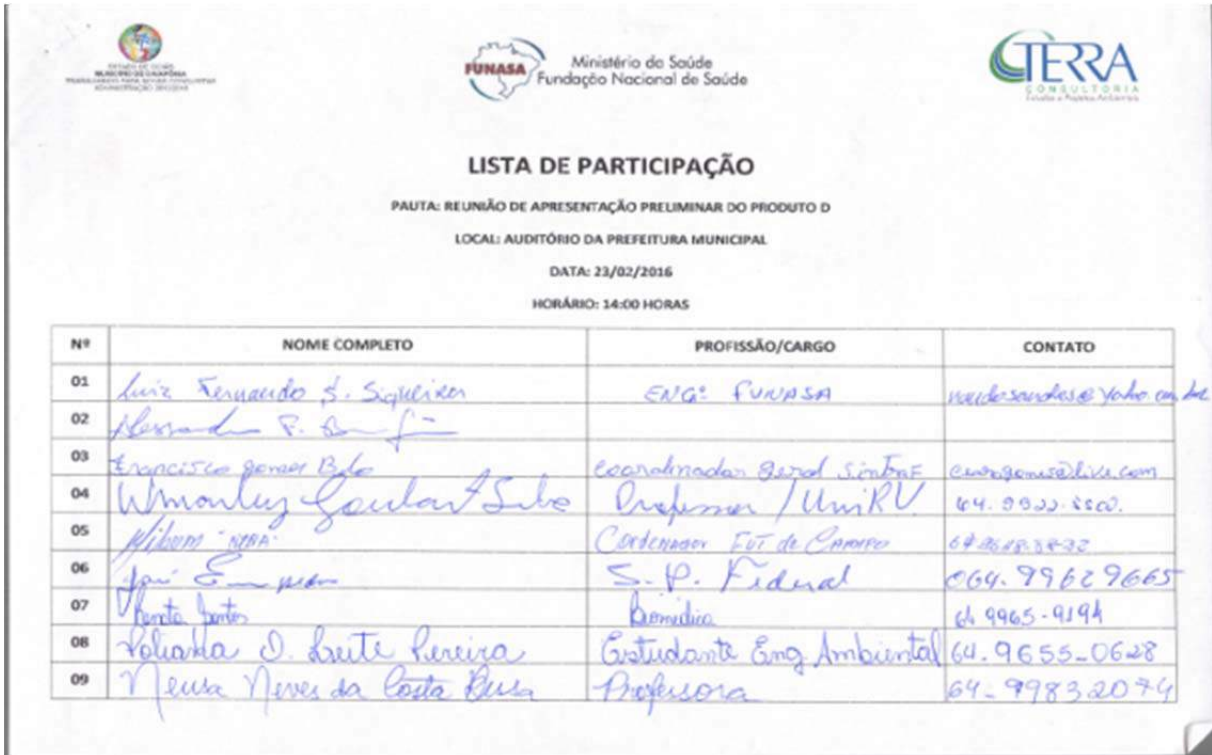 ESTADO DE GOIÁS
ADMINISTRAÇÃO
FUNASA
Ministério da Saúde
Fundação Nacional de Saúde
TERRA
CONSULTORIA
Estudos e Projetos Ambientais
LISTA DE PARTICIPAÇÃO
PAUTA: REUNIÃO DE APRESENTAÇÃO PRELIMINAR DO PRODUTO D
LOCAL: AUDITÓRIO DA PREFEITURA MUNICIPAL
DATA: 23/02/2016
HORÁRIO: 14:00 HORAS
Nº NOME COMPLETO PROFISSÃO/CARGO CONTATO
01 Luiz Fernando S. Siqueira ENGº FUNASA
02
03 Francisco Gomes coordenador geral
04 Goulart Silva Professor / UniRV
05 Coordenador FUT de CAMPO
06 José S. P. Federal 064.99629665
07 Renata Santos Biomédica 64 9965-9194
08 Poliana D. Leite Pereira Estudante Eng Ambiental 64.9655-0628
09 Neusa Neves da Costa Professora 64-99832074